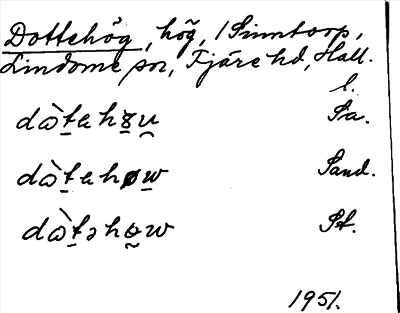 Dottehög, hög, i Sinntorp,
Lindome sn, Fjäre hd, Hall.
l.
dὼt̲ah Sa.
dὼt̲ahøw̲ Sand.
dὼt̲əh St.
1951.